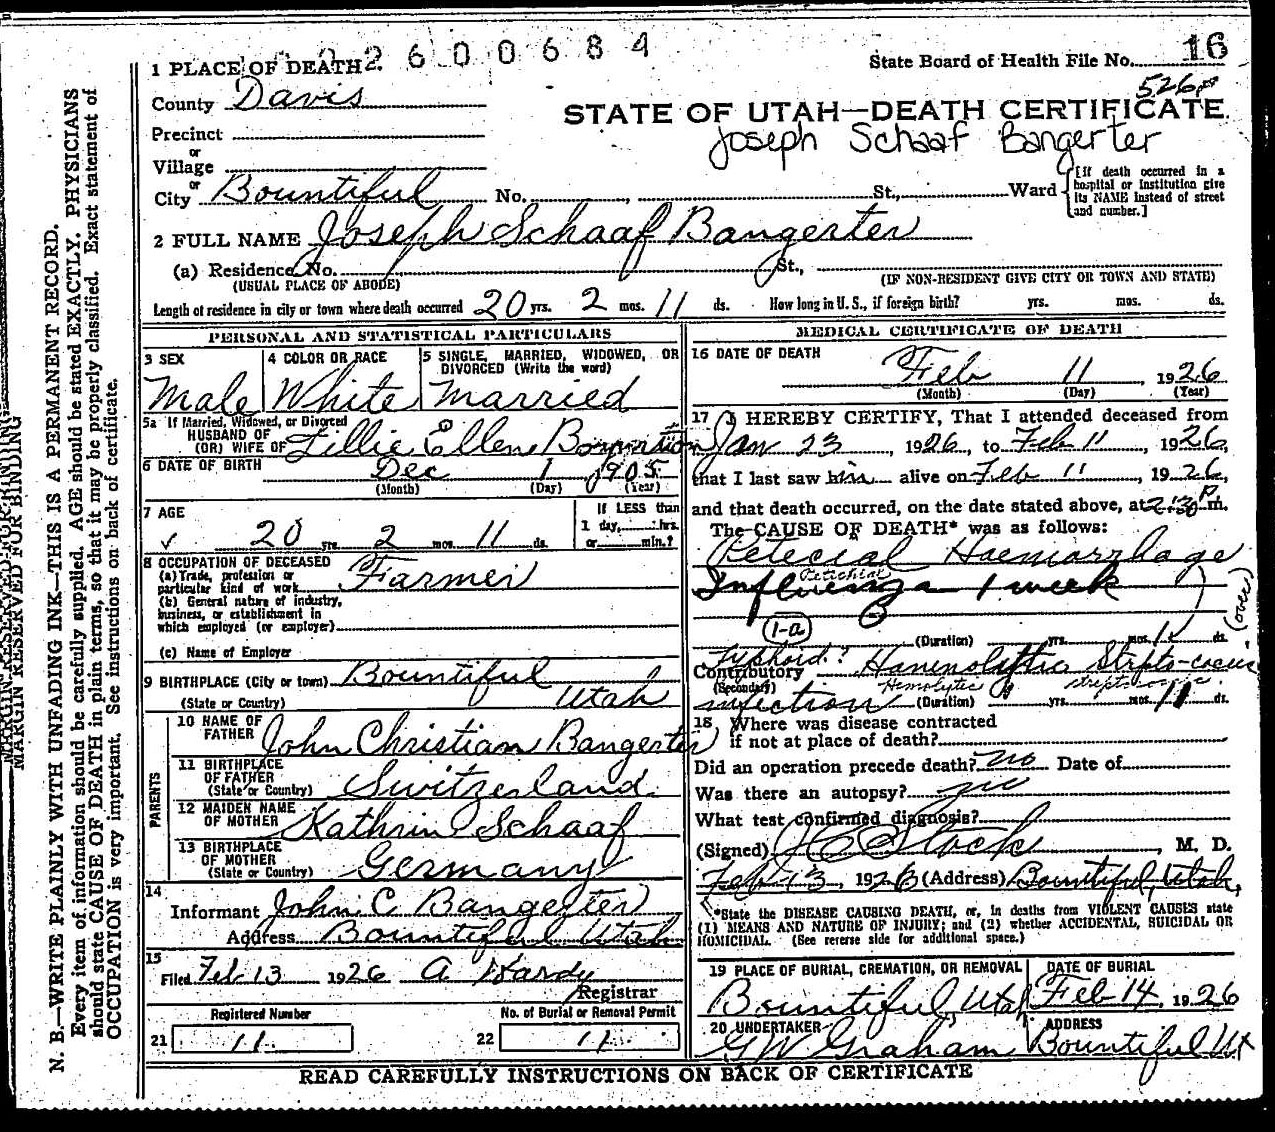 2600684
State Board of Health File No. 16
1 PLACE OF DEARTH
County Davis
526
STATE OF UTAH—DEATH CERTIFICATE
Precinct
Joseph Schaaf Bangerter
or
Village
or
City Bountiful No. , St., Ward
[If death occurred in a
hospital or institution give
its NAME instead of street
and number.]
2 FULL NAME Joseph Schaaf Bangerter
(a) Residence. No. St.,
(USUAL PLACE OF ABODE)
(IF NON-RESIDENT GIVE CITY OR TOWN AND STATE)
Length of residence in city or town where death occurred 20 yrs. 2 mos. 11 ds. How long in U. S., if foreign birth? yrs. mos. ds.
PERSONAL AND STATISTICAL PARTICULARS
3 SEX
Male
4 COLOR OR RACE
White
5 SINGLE, MARRIED, WIDOWED, OR
DIVORCED (Write the word)
Married
5a If Married, Widowed, or Divorced
HUSBAND OF
(OR) WIFE OF Lillie Ellen Boynton
6 DATE OF BIRTH Dec 1 1905
(Month) (Day) (Year)
7 AGE
20 yrs. 2 mos. 11 ds.
If LESS than
1 day, hrs.
or min.?
8 OCCUPATION OF DECEASED
(a) Trade, profession or
particular kind of work Farmer
(b) General nature of industry,
business, or establishment in
which employed (or employer)
(c) Name of Employer
9 BIRTHPLACE (City or town) Bountiful
(State or Country) Utah
PARENTS
10 NAME OF
FATHER John Christian Bangerter
11 BIRTHPLACE
OF FATHER
(State or Country) Switzerland
12 MAIDEN NAME
OF MOTHER Kathrin Schaaf
13 BIRTHPLACE
OF MOTHER
(State or Country) Germany
14
Informant John C Bangerter
Address Bountiful Utah
15
Filed Feb 13 1926 A Hardy
Registrar
Registered Number
21 11
No. of Burial or Removal Permit
22 11
MEDICAL CERTIFICATE OF DEATH
16 DATE OF DEATH
Feb 11, 1926
(Month) (Day) (Year)
17 I HEREBY CERTIFY, That I attended deceased from
Jan 23 1926, to Feb 11, 1926,
that I last saw him alive on Feb 11, 1926,
and that death occurred, on the date stated above, at 2:30 P m.
The CAUSE OF DEATH* was as follows:
Petecial Haemorrhage
Petechial
Influenza 1 week
(over)
1-a
(Duration) yrs. mos. ds.
Typhoid?
Contributory Haemolytic Strepto-cocus
(Secondary) Hemolytic streptococcic
infection (Duration) yrs. mos. 11 ds.
18 Where was disease contracted
if not at place of death?
Did an operation precede death? no Date of
Was there an autopsy?
What test confirmed diagnosis?
(Signed) J C Stocks, M. D.
Feb 13, 1926 (Address) Bountiful, Utah,
*State the DISEASE CAUSING DEATH, or, in deaths from VIOLENT CAUSES state
(1) MEANS AND NATURE OF INJURY; and (2) whether ACCIDENTAL, SUICIDAL OR
HOMICIDAL. (See reverse side for additional space.)
19 PLACE OF BURIAL, CREMATION, OR REMOVAL
Bountiful, Utah
DATE OF BURIAL
Feb 14, 1926
20 UNDERTAKER
G W Graham
ADDRESS
Bountiful Ut
READ CAREFULLY INSTRUCTIONS ON BACK OF CERTIFICATE
MARGIN RESERVED FOR BINDING
N. B.—WRITE PLAINLY WITH UNFADING INK—THIS IS A PERMANENT RECORD.
Every item of information should be carefully supplied. AGE should be stated EXACTLY. PHYSICIANS
should state CAUSE OF DEATH in plain terms, so that it may be properly classified. Exact statement of
OCCUPATION is very important. See instructions on back of certificate.